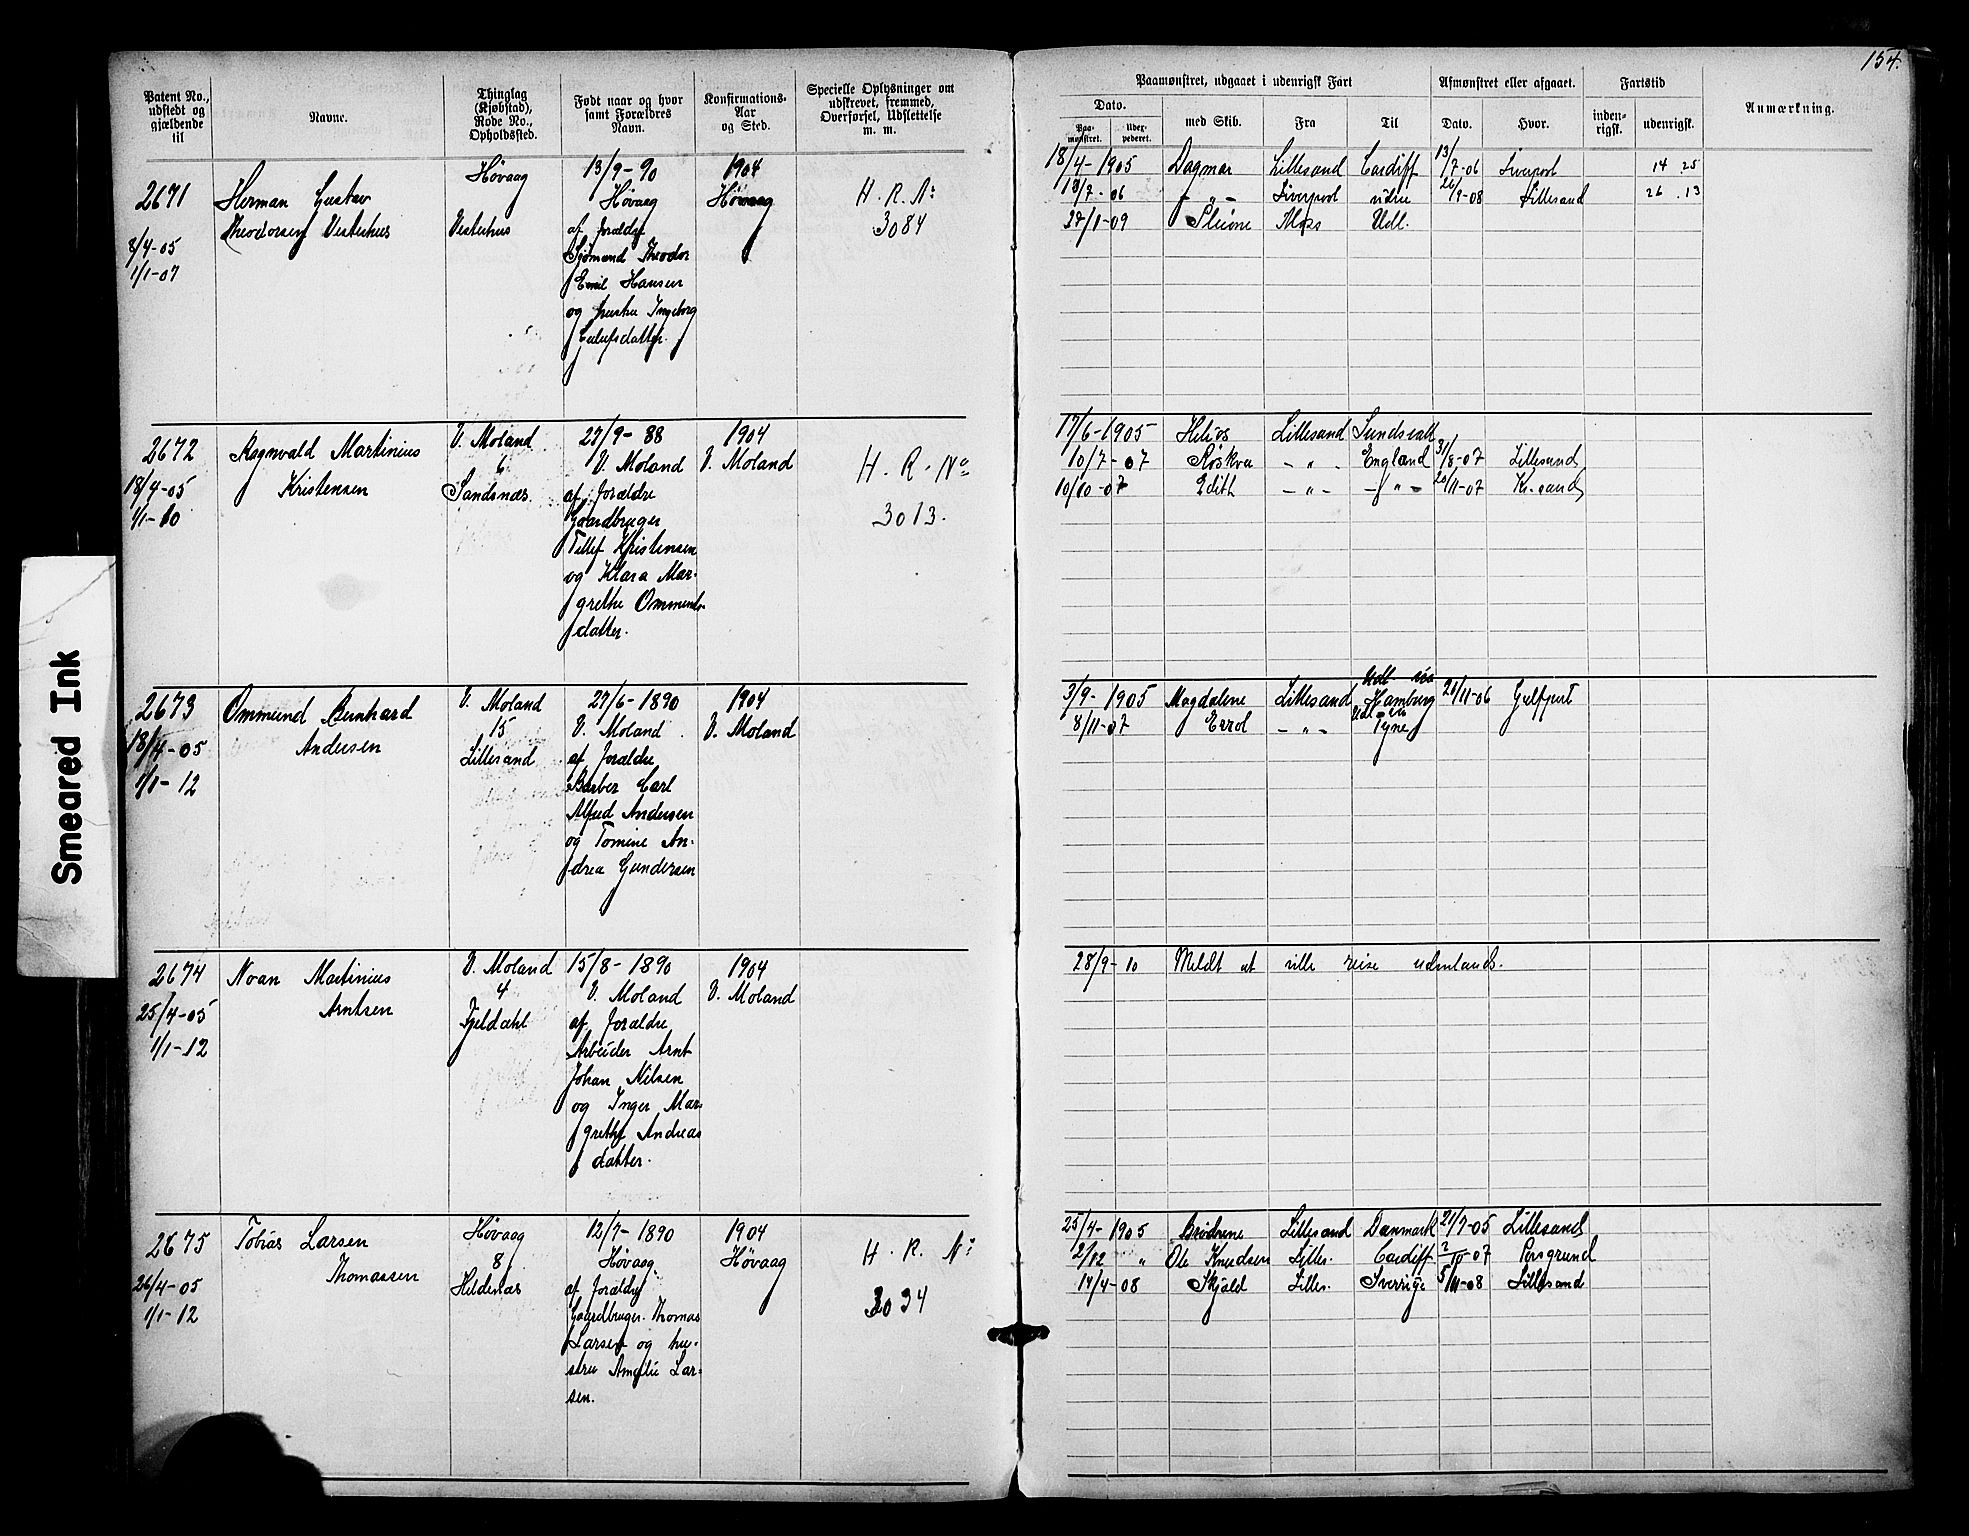 154.
Patent No., udstedt og gjældende til
Navne.
Thinglag (Kjøbstad), Rode No., Opholdssted.
Født naar og hvor samt Forældres Navn.
Konfirmations-Aar og Sted.
Specielle Oplysninger om udskrevet, fremmed, Overførsel, Udslettelse m. m.
Paamønstret, udgaaet i udenrigsk Fart
Afmønstret eller afgaaet.
Fartstid
Anmærkning.
Dato.
Paa-mønstret.
Uder-pederet.
med Skib.
Fra
Til
Dato.
Hvor.
inden-rigsk.
udenrigsk.
2671
8/4-05
1/1-07
Herman Gustav
Theodorsen Vesterhus
Høvaag
Vesterhus
13/9-90
Høvaag
af Forældre
Sjømand Theodor
Emil Hansen
og hustru Ingeborg
1904
Høvaag
H. R. No
3084
18/4-1905 Dagmar Lillesand Cardiff 13/7-06 Liverpool 14 25
18/7-06 - " - Liverpool 26/9-08 Lillesand 26 . 13
27/1-09 Pleione Moss Udl.
2672
18/4-05
1/1-10
Ragnvald Martinius
Kristensen
V. Moland
6
Sandsnæs.
27/9-88
V. Moland
af Forældre
Gaardbruger
Tellef Kristensen
og Klara Mar-
grethe Ommunds-
datter.
1904
V. Moland
H. R. No
3013.
17/6-1905 Helios Lillesand Sundsvall
10/7-07 Røskva - " - England 31/8-07 Lillesand
10/10-07 Edith - " - - " - 20/11-07 Kr.sand
2673
18/4-05
1/1-12
Ommund Bernhard
Andersen
V. Moland
15
Lillesand
27/6-1890
V. Moland
af Forældre
Barber Carl
Alfred Andersen
og Tomine An-
drea Gundersen
1904
V. Moland
Udl via
3/9-1905 Magdalene Lillesand Hamburg 20/11-06 Gulfport
Udl via
8/11-07 Errol - " - Tyne
2674
25/4-05
1/1-12
Noan Martinius
Arntsen
V. Moland
4
Fjeldahl
15/8-1890
V. Moland
af Forældre
Arbeider Arnt
Johan Nilsen
og Inger Mar-
grethe Andreas
datter.
1904
V. Moland
28/9-10 Meldt at ville reise udenlands.
2675
26/4-05
1/1-12
Tobias Larsen
Thomassen
Høvaag
8
Heldesnæs
12/7-1890
Høvaag
af Forældre
Gaardbruger Thomas
Larsen og hu-
stru Amalie Lar-
sen.
1904
Høvaag
H. R. No
3034
25/4-1905 Brødrene Lillesand Danmark 21/7-05 Lillesand
2/12 " Ole Knudsen Lilles. Cardiff 2/10-07 Porsgrund
14/4-08 Skjold Lilles. Sverige 5/11-08 Lillesand
Smeared Ink